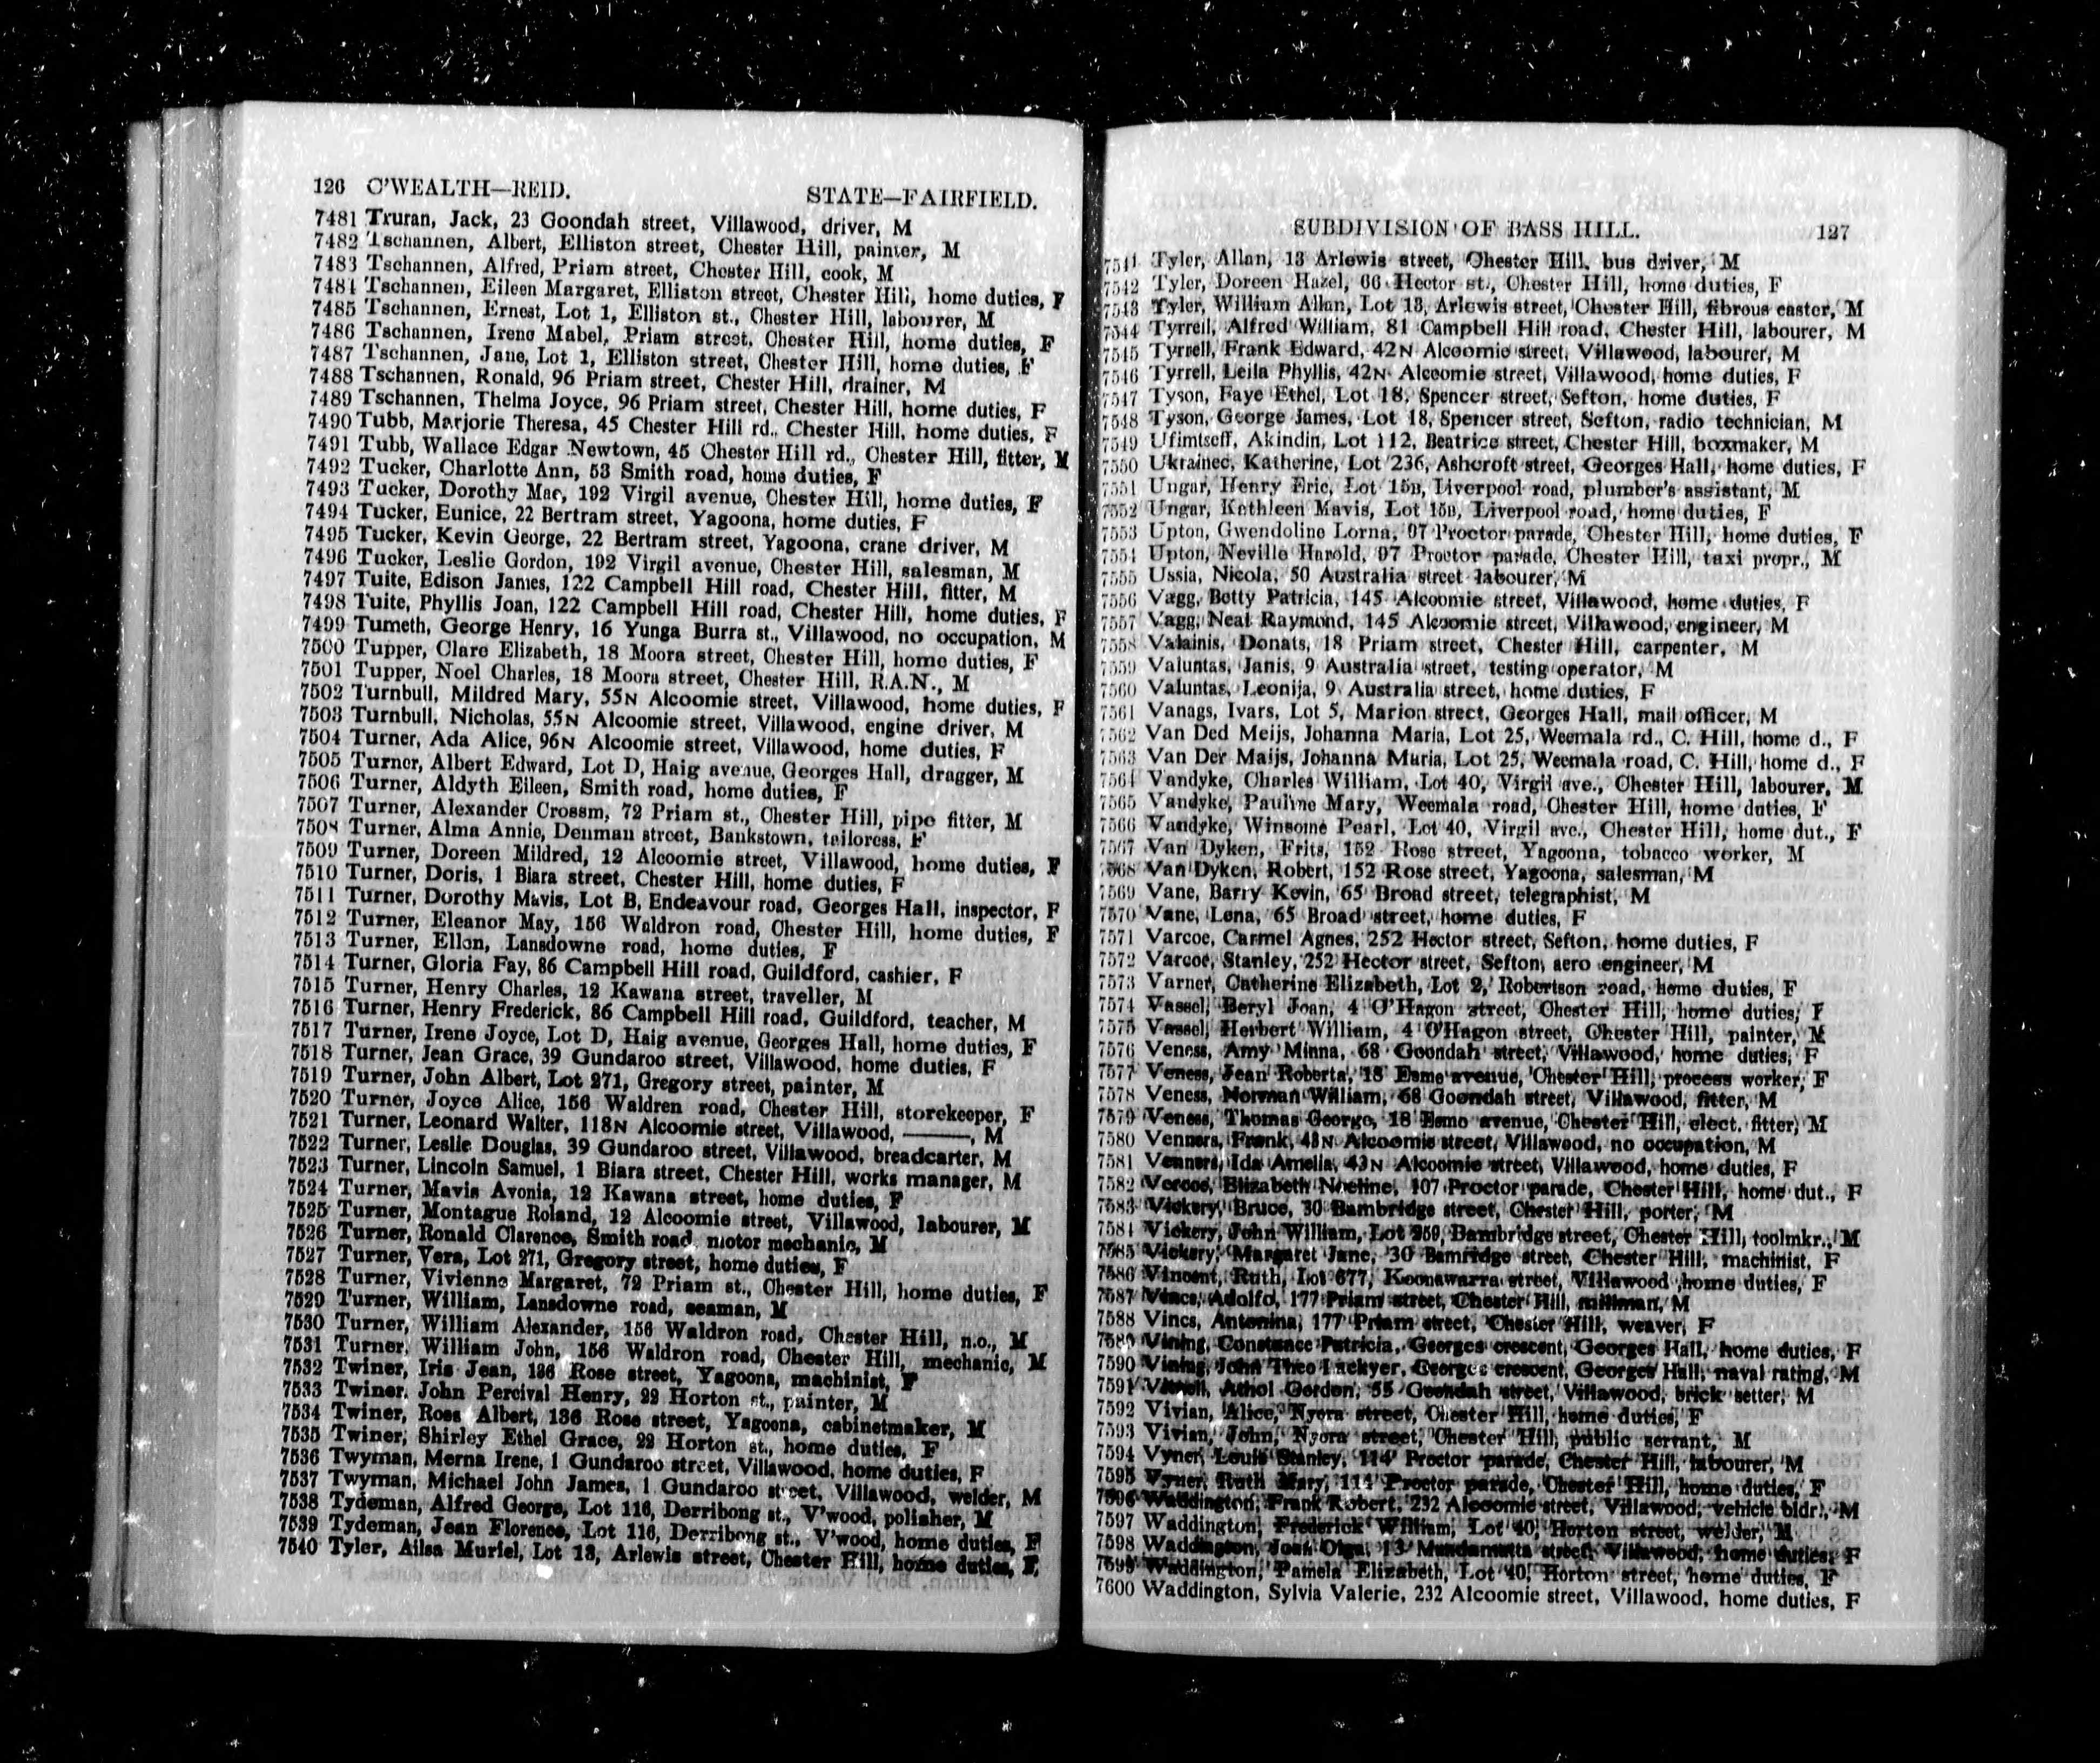 126 C'WEALTH—REID. STATE—FAIRFIELD.
7481 Truran, Jack, 23 Goondah street, Villawood, driver, M
7482 Tschannen, Albert, Elliston street, Chester Hill, painter, M
7483 Tschannen, Alfred, Priam street, Chester Hill, cook, M
7484 Tschannen, Eileen Margaret, Elliston street, Chester Hill, home duties, F
7485 Tschannen, Ernest, Lot 1, Elliston st., Chester Hill, labourer, M
7486 Tschannen, Irene Mabel, Priam street, Chester Hill, home duties, F
7487 Tschannen, Jane, Lot 1, Elliston street, Chester Hill, home duties, F
7488 Tschannen, Ronald, 96 Priam street, Chester Hill, drainer, M
7489 Tschannen, Thelma Joyce, 96 Priam street, Chester Hill, home duties, F
7490 Tubb, Marjorie Theresa, 45 Chester Hill rd., Chester Hill, home duties, F
7491 Tubb, Wallace Edgar Newtown, 45 Chester Hill rd., Chester Hill, fitter, M
7492 Tucker, Charlotte Ann, 53 Smith road, home duties, F
7493 Tucker, Dorothy Mae, 192 Virgil avenue, Chester Hill, home duties, F
7494 Tucker, Eunice, 22 Bertram street, Yagoona, home duties, F
7495 Tucker, Kevin George, 22 Bertram street, Yagoona, crane driver, M
7496 Tucker, Leslie Gordon, 192 Virgil avenue, Chester Hill, salesman, M
7497 Tuite, Edison James, 122 Campbell Hill road, Chester Hill, fitter, M
7498 Tuite, Phyllis Joan, 122 Campbell Hill road, Chester Hill, home duties, F
7499 Tumeth, George Henry, 16 Yunga Burra st., Villawood, no occupation, M
7500 Tupper, Clare Elizabeth, 18 Moora street, Chester Hill, home duties, F
7501 Tupper, Noel Charles, 18 Moora street, Chester Hill, R.A.N., M
7502 Turnbull, Mildred Mary, 55N Alcoomie street, Villawood, home duties, F
7503 Turnbull, Nicholas, 55N Alcoomie street, Villawood, engine driver, M
7504 Turner, Ada Alice, 96N Alcoomie street, Villawood, home duties, F
7505 Turner, Albert Edward, Lot D, Haig avenue, Georges Hall, dragger, M
7506 Turner, Aldyth Eileen, Smith road, home duties, F
7507 Turner, Alexander Crossm, 72 Priam st., Chester Hill, pipe fitter, M
7508 Turner, Alma Annie, Denman street, Bankstown, tailoress, F
7509 Turner, Doreen Mildred, 12 Alcoomie street, Villawood, home duties, F
7510 Turner, Doris, 1 Biara street, Chester Hill, home duties, F
7511 Turner, Dorothy Mavis, Lot B, Endeavour road, Georges Hall, inspector, F
7512 Turner, Eleanor May, 156 Waldron road, Chester Hill, home duties, F
7513 Turner, Ellen, Lansdowne road, home duties, F
7514 Turner, Gloria Fay, 86 Campbell Hill road, Guildford, cashier, F
7515 Turner, Henry Charles, 12 Kawana street, traveller, M
7516 Turner, Henry Frederick, 86 Campbell Hill road, Guildford, teacher, M
7517 Turner, Irene Joyce, Lot D, Haig avenue, Georges Hall, home duties, F
7518 Turner, Jean Grace, 39 Gundaroo street, Villawood, home duties, F
7519 Turner, John Albert, Lot 271, Gregory street, painter, M
7520 Turner, Joyce Alice, 156 Waldren road, Chester Hill, storekeeper, F
7521 Turner, Leonard Walter, 118N Alcoomie street, Villawood, ———, M
7522 Turner, Leslie Douglas, 39 Gundaroo street, Villawood, breadcarter, M
7523 Turner, Lincoln Samuel, 1 Biara street, Chester Hill, works manager, M
7524 Turner, Mavis Avonia, 12 Kawana street, home duties, F
7525 Turner, Montague Roland, 12 Alcoomie street, Villawood, labourer, M
7526 Turner, Ronald Clarence, Smith road, motor mechanic, M
7527 Turner, Vera, Lot 271, Gregory street, home duties, F
7528 Turner, Vivienne Margaret, 72 Priam st., Chester Hill, home duties, F
7529 Turner, William, Lansdowne road, seaman, M
7530 Turner, William Alexander, 156 Waldron road, Chester Hill, n.o., M
7531 Turner, William John, 156 Waldron road, Chester Hill, mechanic, M
7532 Twiner, Iris Jean, 136 Rose street, Yagoona, machinist, F
7533 Twiner, John Percival Henry, 22 Horton st., painter, M
7534 Twiner, Ross Albert, 136 Rose street, Yagoona, cabinetmaker, M
7535 Twiner, Shirley Ethel Grace, 22 Horton st., home duties, F
7536 Twyman, Merna Irene, 1 Gundaroo street, Villawood, home duties, F
7537 Twyman, Michael John James, 1 Gundaroo street, Villawood, welder, M
7538 Tydeman, Alfred George, Lot 116, Derribong st., V'wood, polisher, M
7539 Tydeman, Jean Florence, Lot 116, Derribong st., V'wood, home duties, F
7540 Tyler, Ailsa Muriel, Lot 13, Arlewis street, Chester Hill, home duties, F
SUBDIVISION OF BASS HILL. 127
7541 Tyler, Allan, 13 Arlewis street, Chester Hill, bus driver, M
7542 Tyler, Doreen Hazel, 66 Hector st., Chester Hill, home duties, F
7543 Tyler, William Allan, Lot 13, Arlewis street, Chester Hill, fibrous caster, M
7544 Tyrrell, Alfred William, 81 Campbell Hill road, Chester Hill, labourer, M
7545 Tyrrell, Frank Edward, 42N Alcoomie street, Villawood, labourer, M
7546 Tyrrell, Leila Phyllis, 42N Alcoomie street, Villawood, home duties, F
7547 Tyson, Faye Ethel, Lot 18, Spencer street, Sefton, home duties, F
7548 Tyson, George James, Lot 18, Spencer street, Sefton, radio technician, M
7549 Ufimtseff, Akindin, Lot 112, Beatrice street, Chester Hill, boxmaker, M
7550 Ukrainec, Katherine, Lot 236, Ashcroft street, Georges Hall, home duties, F
7551 Ungar, Henry Eric, Lot 15B, Liverpool road, plumber's assistant, M
7552 Ungar, Kathleen Mavis, Lot 15B, Liverpool road, home duties, F
7553 Upton, Gwendoline Lorna, 97 Proctor parade, Chester Hill, home duties, F
7554 Upton, Neville Harold, 97 Proctor parade, Chester Hill, taxi propr., M
7555 Ussia, Nicola, 50 Australia street labourer, M
7556 Vagg, Betty Patricia, 145 Alcoomie street, Villawood, home duties, F
7557 Vagg, Neal Raymond, 145 Alcoomie street, Villawood, engineer, M
7558 Valainis, Donats, 18 Priam street, Chester Hill, carpenter, M
7559 Valuntas, Janis, 9 Australia street, testing operator, M
7560 Valuntas, Leonija, 9 Australia street, home duties, F
7561 Vanags, Ivars, Lot 5, Marion street, Georges Hall, mail officer, M
7562 Van Ded Meijs, Johanna Maria, Lot 25, Weemala rd., C. Hill, home d., F
7563 Van Der Maijs, Johanna Muria, Lot 25, Weemala road, C. Hill, home d., F
7564 Vandyke, Charles William, Lot 40, Virgil ave., Chester Hill, labourer, M
7565 Vandyke, Pauline Mary, Weemala road, Chester Hill, home duties, F
7566 Vandyke, Winsome Pearl, Lot 40, Virgil ave., Chester Hill, home dut., F
7567 Van Dyken, Frits, 152 Rose street, Yagoona, tobacco worker, M
7568 Van Dyken, Robert, 152 Rose street, Yagoona, salesman, M
7569 Vane, Barry Kevin, 65 Broad street, telegraphist, M
7570 Vane, Lena, 65 Broad street, home duties, F
7571 Varcoe, Carmel Agnes, 252 Hector street, Sefton, home duties, F
7572 Varcoe, Stanley, 252 Hector street, Sefton, aero engineer, M
7573 Varner, Catherine Elizabeth, Lot 2, Robertson road, home duties, F
7574 Vassel, Beryl Joan, 4 O'Hagon street, Chester Hill, home duties, F
7575 Vassel, Herbert William, 4 O'Hagon street, Chester Hill, painter, M
7576 Veness, Amy Minna, 68 Goondah street, Villawood, home duties, F
7577 Veness, Jean Roberta, 18 Esme avenue, Chester Hill, process worker, F
7578 Veness, Norman William, 68 Goondah street, Villawood, fitter, M
7579 Veness, Thomas George, 18 Esme avenue, Chester Hill, elect. fitter, M
7580 Venners, Frank, 43N Alcoomie street, Villawood, no occupation, M
7581 Venners, Ida Amelia, 43N Alcoomie street, Villawood, home duties, F
7582 Vercoe, Elizabeth Noeline, 107 Proctor parade, Chester Hill, home dut., F
7583 Vickery, Bruce, 30 Bambridge street, Chester Hill, porter, M
7584 Vickery, John William, Lot 359, Bambridge street, Chester Hill, toolmkr., M
7585 Vickery, Margaret Jane, 30 Bamridge street, Chester Hill, machinist, F
7586 Vincent, Ruth, Lot 677, Koonawarra street, Villawood, home duties, F
7587 Vincs, Adolfo, 177 Priam street, Chester Hill, millman, M
7588 Vincs, Antonina, 177 Priam street, Chester Hill, weaver, F
7589 Vining, Constance Patricia, Georges crescent, Georges Hall, home duties, F
7590 Vining, John Theo Lackyer, Georges crescent, Georges Hall, naval rating, M
7591 Athol Gordon, 55 Goondah street, Villawood, brick setter, M
7592 Vivian, Alice, Nyora street, Chester Hill, home duties, F
7593 Vivian, John, Nyora street, Chester Hill, public servant, M
7594 Vyner, Louis Stanley, 114 Proctor parade, Chester Hill, labourer, M
7595 Vyner, Ruth Mary, 114 Proctor parade, Chester Hill, home duties, F
7596 Waddington, Frank Robert, 232 Alcoomie street, Villawood, vehicle bldr., M
7597 Waddington, Frederick William, Lot 40, Horton street, welder, M
7598 Waddington, Joan Olga, 13 street, Villawood, home duties, F
7599 Waddington, Pamela Elizabeth, Lot 40, Horton street, home duties, F
7600 Waddington, Sylvia Valerie, 232 Alcoomie street, Villawood, home duties, F